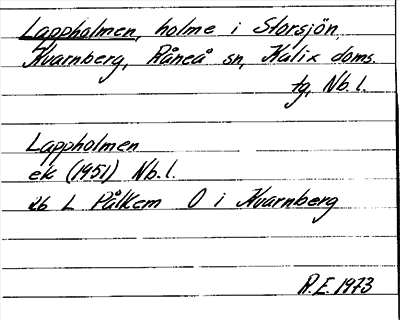 Lappholmen, holme i Storsjön,
Kvarnberg, Råneå sn, Kalix doms.
tg, Nb. l.
Lappholmen
ek (1951) Nb. l.
26 L Pålkem O i Kvarnberg
R.E. 1973